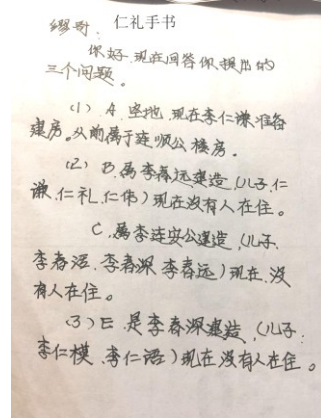 仁礼手书
缪哥:
你好.现在回答你提出的
三个问题。
(1) A.空地 现在李仁谦准备
建房。从前属于连顺公楼房。
(2) B.属李春远建造,(儿子.仁
谦.仁礼.仁伟)现在没有人在住。
C.属李连安公建造,(儿子.
李春浯.李春深.李春远)现在.没
有人在住。
(3) E.是李春深建造,(儿子.
李仁模.李仁浯)现在没有人在住。